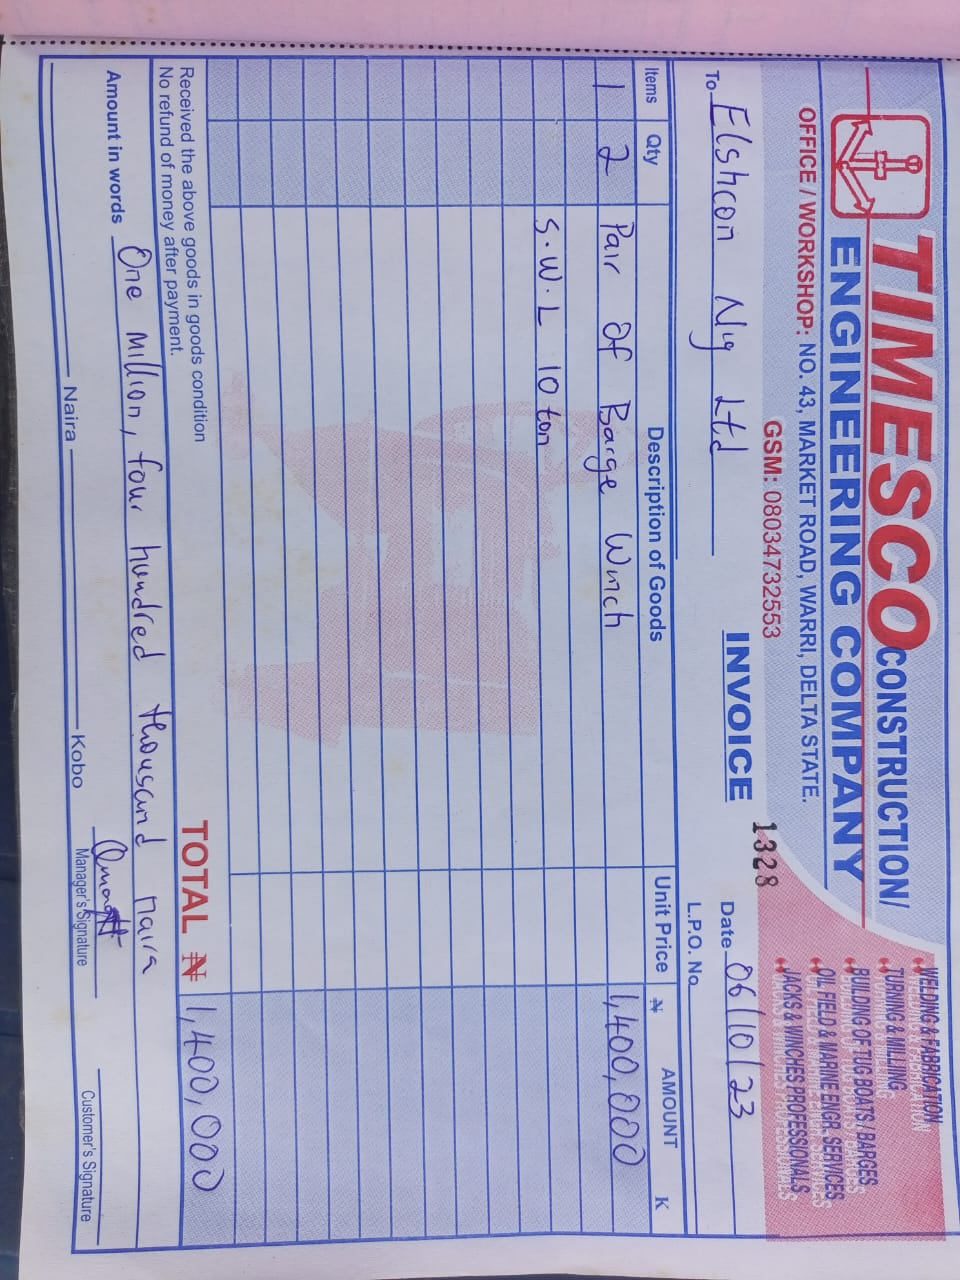 TIMESCO CONSTRUCTION/
ENGINEERING COMPANY
OFFICE / WORKSHOP: NO. 43, MARKET ROAD, WARRI, DELTA STATE.
GSM: 08034732553
WELDING & FABRICATION
TURNING & MILLING
BUILDING OF TUG BOATS / BARGES
OIL FIELD & MARINE ENGR. SERVICES
JACKS & WINCHES PROFESSIONALS
1328
INVOICE
Date 06/10/23
To Elshcon Nig Ltd
L.P.O. No
Items Qty Description of Goods Unit Price ₦ AMOUNT K
1 2 Pair of Barge Winch 1,400,000
S.W.L 10 ton
Received the above goods in goods condition
No refund of money after payment.
TOTAL ₦ 1,400,000
Amount in words One Million, four hundred thousand naira
Naira Kobo
Manager's Signature
Customer's Signature